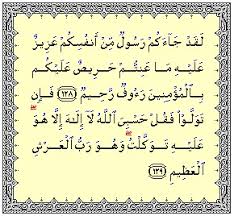 لَقَدْ جَآءَكُمْ رَسُولٌ مِّنْ أَنفُسِكُمْ عَزِيزٌ
عَلَيْهِ مَا عَنِتُّمْ حَرِيصٌ عَلَيْكُم
بِالْمُؤْمِنِينَ رَءُوفٌ رَّحِيمٌ ﴿١٢٨﴾ فَإِن
تَوَلَّوْا۟ فَقُلْ حَسْبِىَ اللَّهُ لَآ إِلَٰهَ إِلَّا هُوَ
عَلَيْهِ تَوَكَّلْتُ وَهُوَ رَبُّ الْعَرْشِ
الْعَظِيمِ ﴿١٢٩﴾